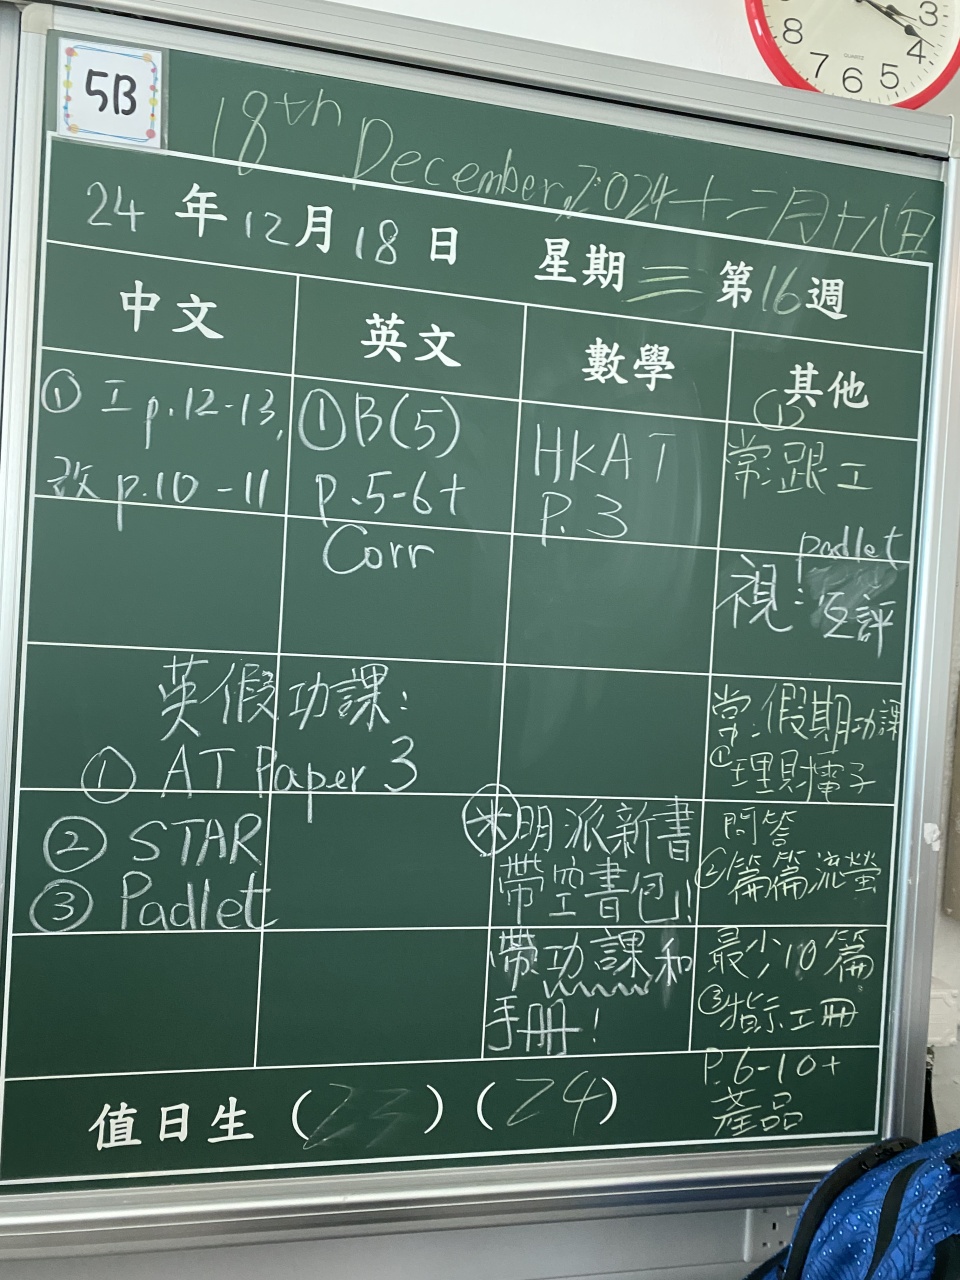 5B
18th December, 2024 十二月十八日
24 年 12 月 18 日 星期 三 第 16 週
中文 英文 數學 其他
① 工 p.12-13,
改 p.10-11
①B(5)
p.5-6+
Corr
HKAT
P.3
①
常:跟工
padlet
視:互評
英假功課:
① AT Paper 3
② STAR
③ Padlet
明派新書
帶空書包!
帶功課和
手冊!
常:假期功課
①理財擂子
問答
②篇篇流螢
最少10篇
③指示工冊
P.6-10+
產品
值日生 (23) (24)
8 7 6 5 4 3
QUARTZ